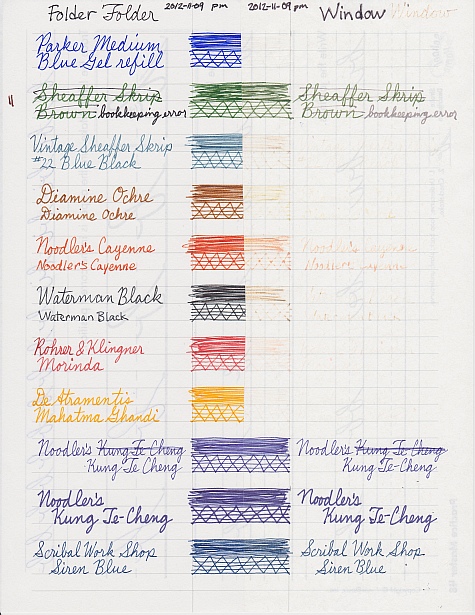 Folder Folder 2012-11-09 pm 2012-11-09 pm Window Window
Parker Medium
Blue Gel refill
Sheaffer Skrip Sheaffer Skrip
11 Brown bookkeeping error Brown bookkeeping error
Vintage Sheaffer Skrip
#22 Blue Black
Diamine Ochre
Diamine Ochre
Noodler's Cayenne Noodler's Cayenne
Noodler's Cayenne Noodler's Cayenne
Waterman Black
Waterman Black
Rohrer & Klingner
Morinda
De Atramentis
Mahatma Ghandi
Noodler's Kung Te Cheng Noodler's Kung Te Cheng
Kung Te Cheng Kung Te Cheng
Noodler's Noodler's
Kung Te-Cheng Kung Te-Cheng
Scribal Work Shop Scribal Work Shop
Siren Blue Siren Blue